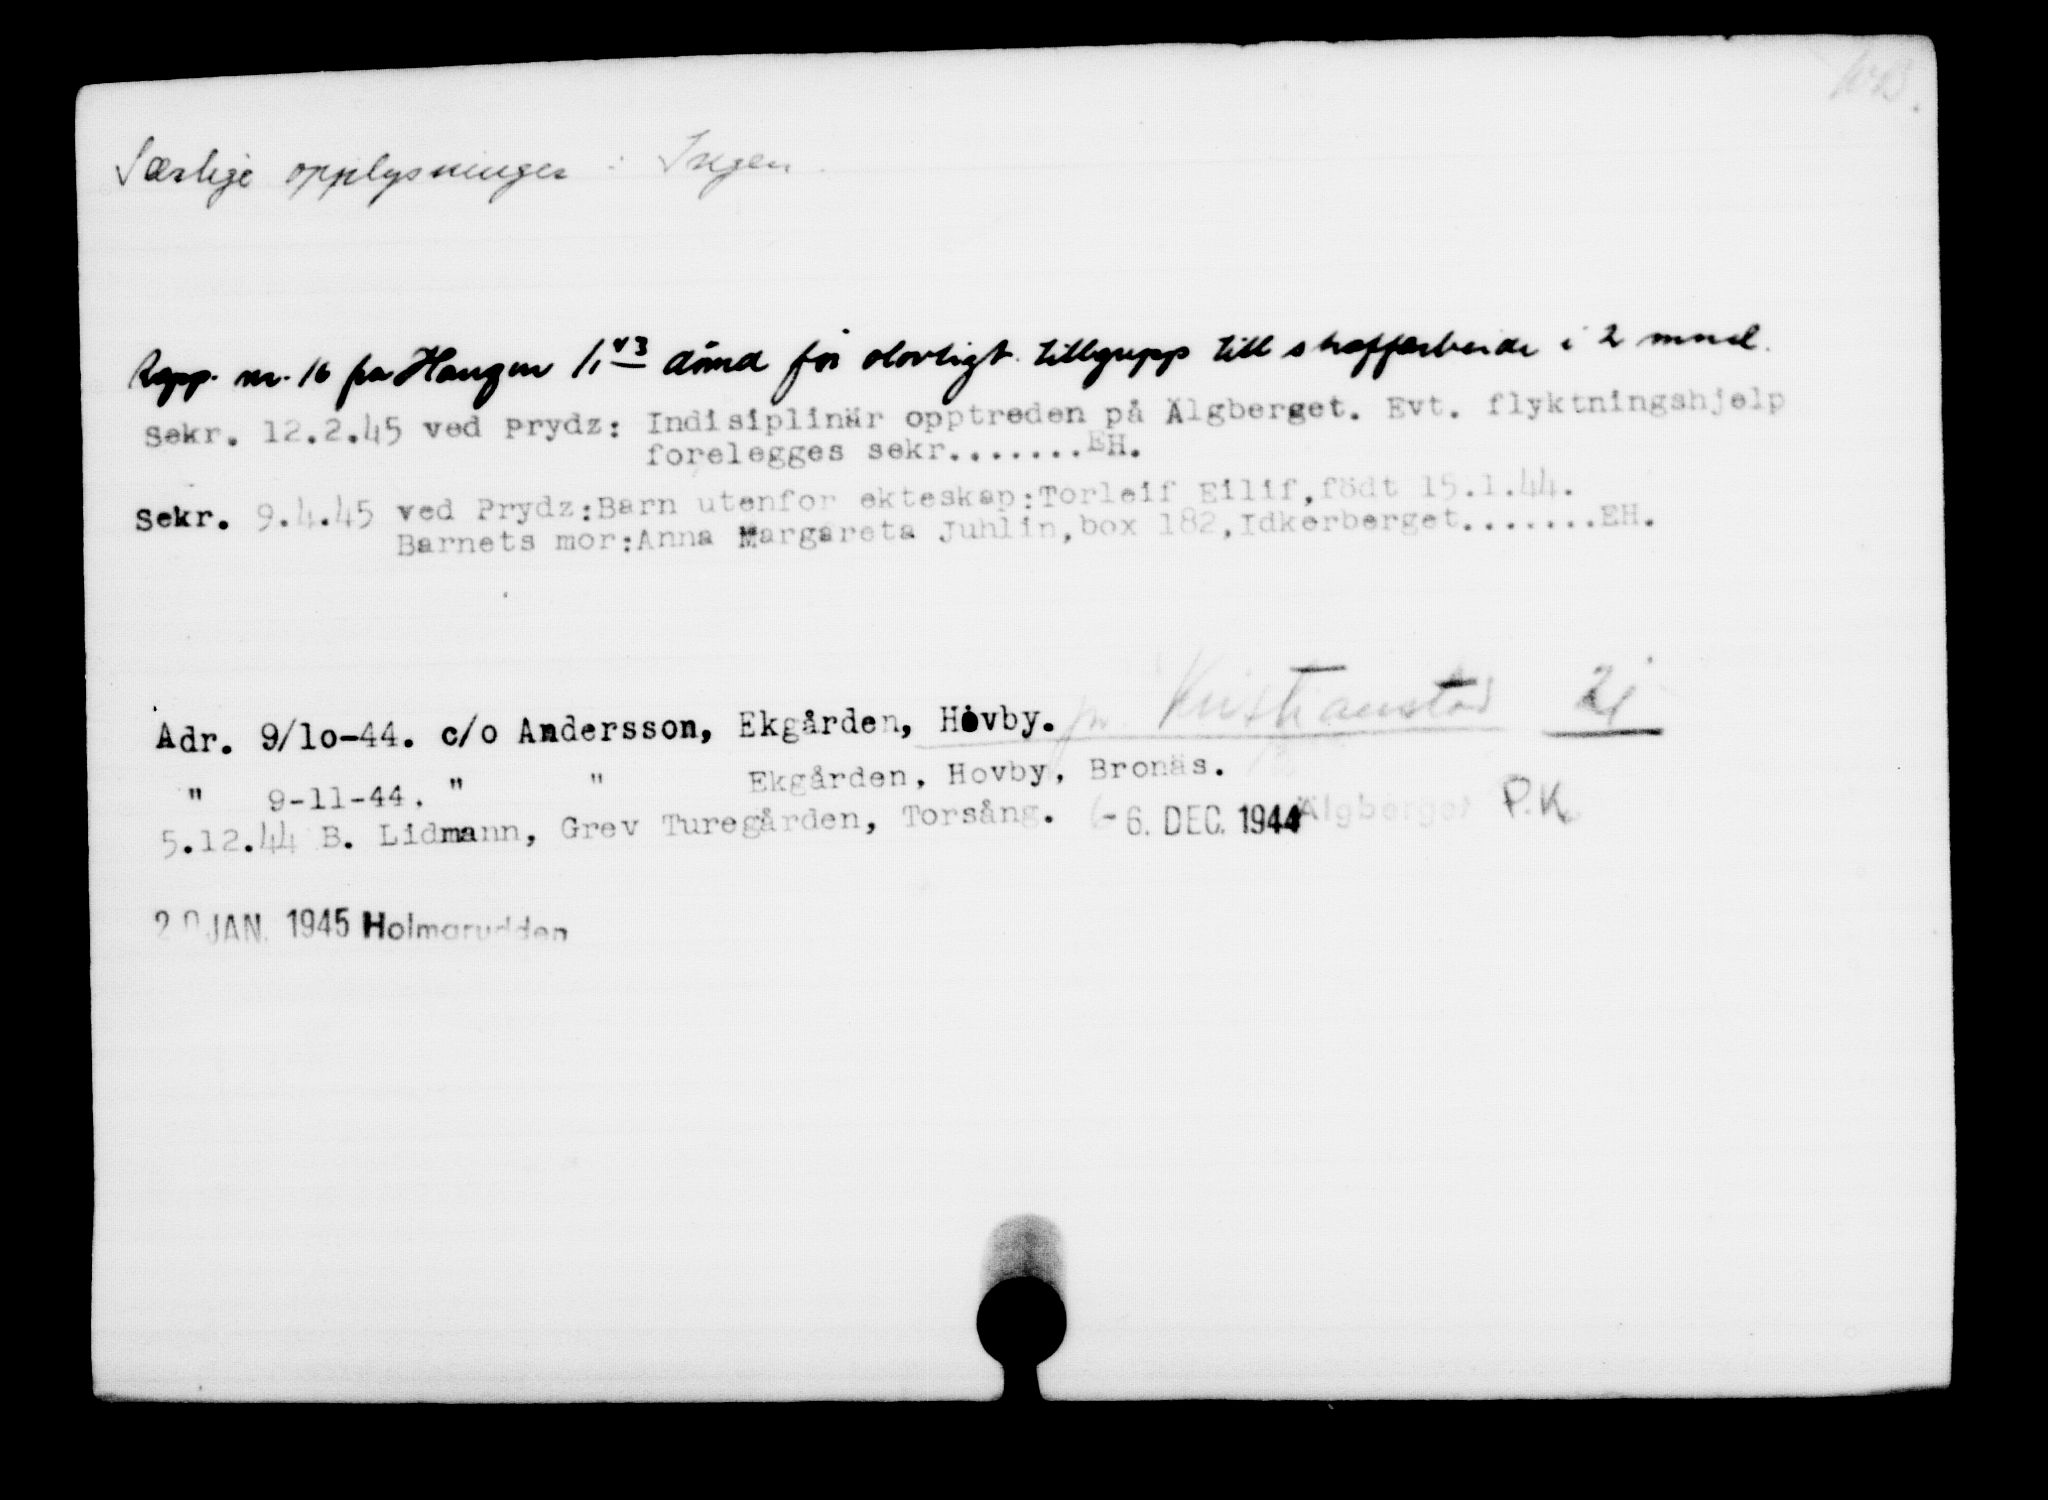 Særlige opplysninger : Ingen.
Rapp. nr. 16 fra Haugen 1/1 43 dömd for olovligt tillgrepp till straffarbeide i 2 mnd.
Sekr. 12.2.45 ved Prydz: Indisiplinär opptreden på Älgberget. Evt. flyktningshjelp
forelegges sekr.......EH.
Sekr. 9.4.45 ved Prydz:Barn utenfor ekteskap:Torleif Eilif,födt 15.1.44.
Barnets mor:Anna Margareta Juhlin,box 182,Idkerberget.......EH.
Adr. 9/1o-44. c/o Andersson, Ekgården, Hovby. pr. Kristianstad
" 9-11-44. " " Ekgården, Hovby, Bronäs.
5.12.44 B. Lidmann, Grev Turegården, Torsång. - 6. DEC. 1944 Älgberget P.K.
20 JAN. 1945 Holmarudden